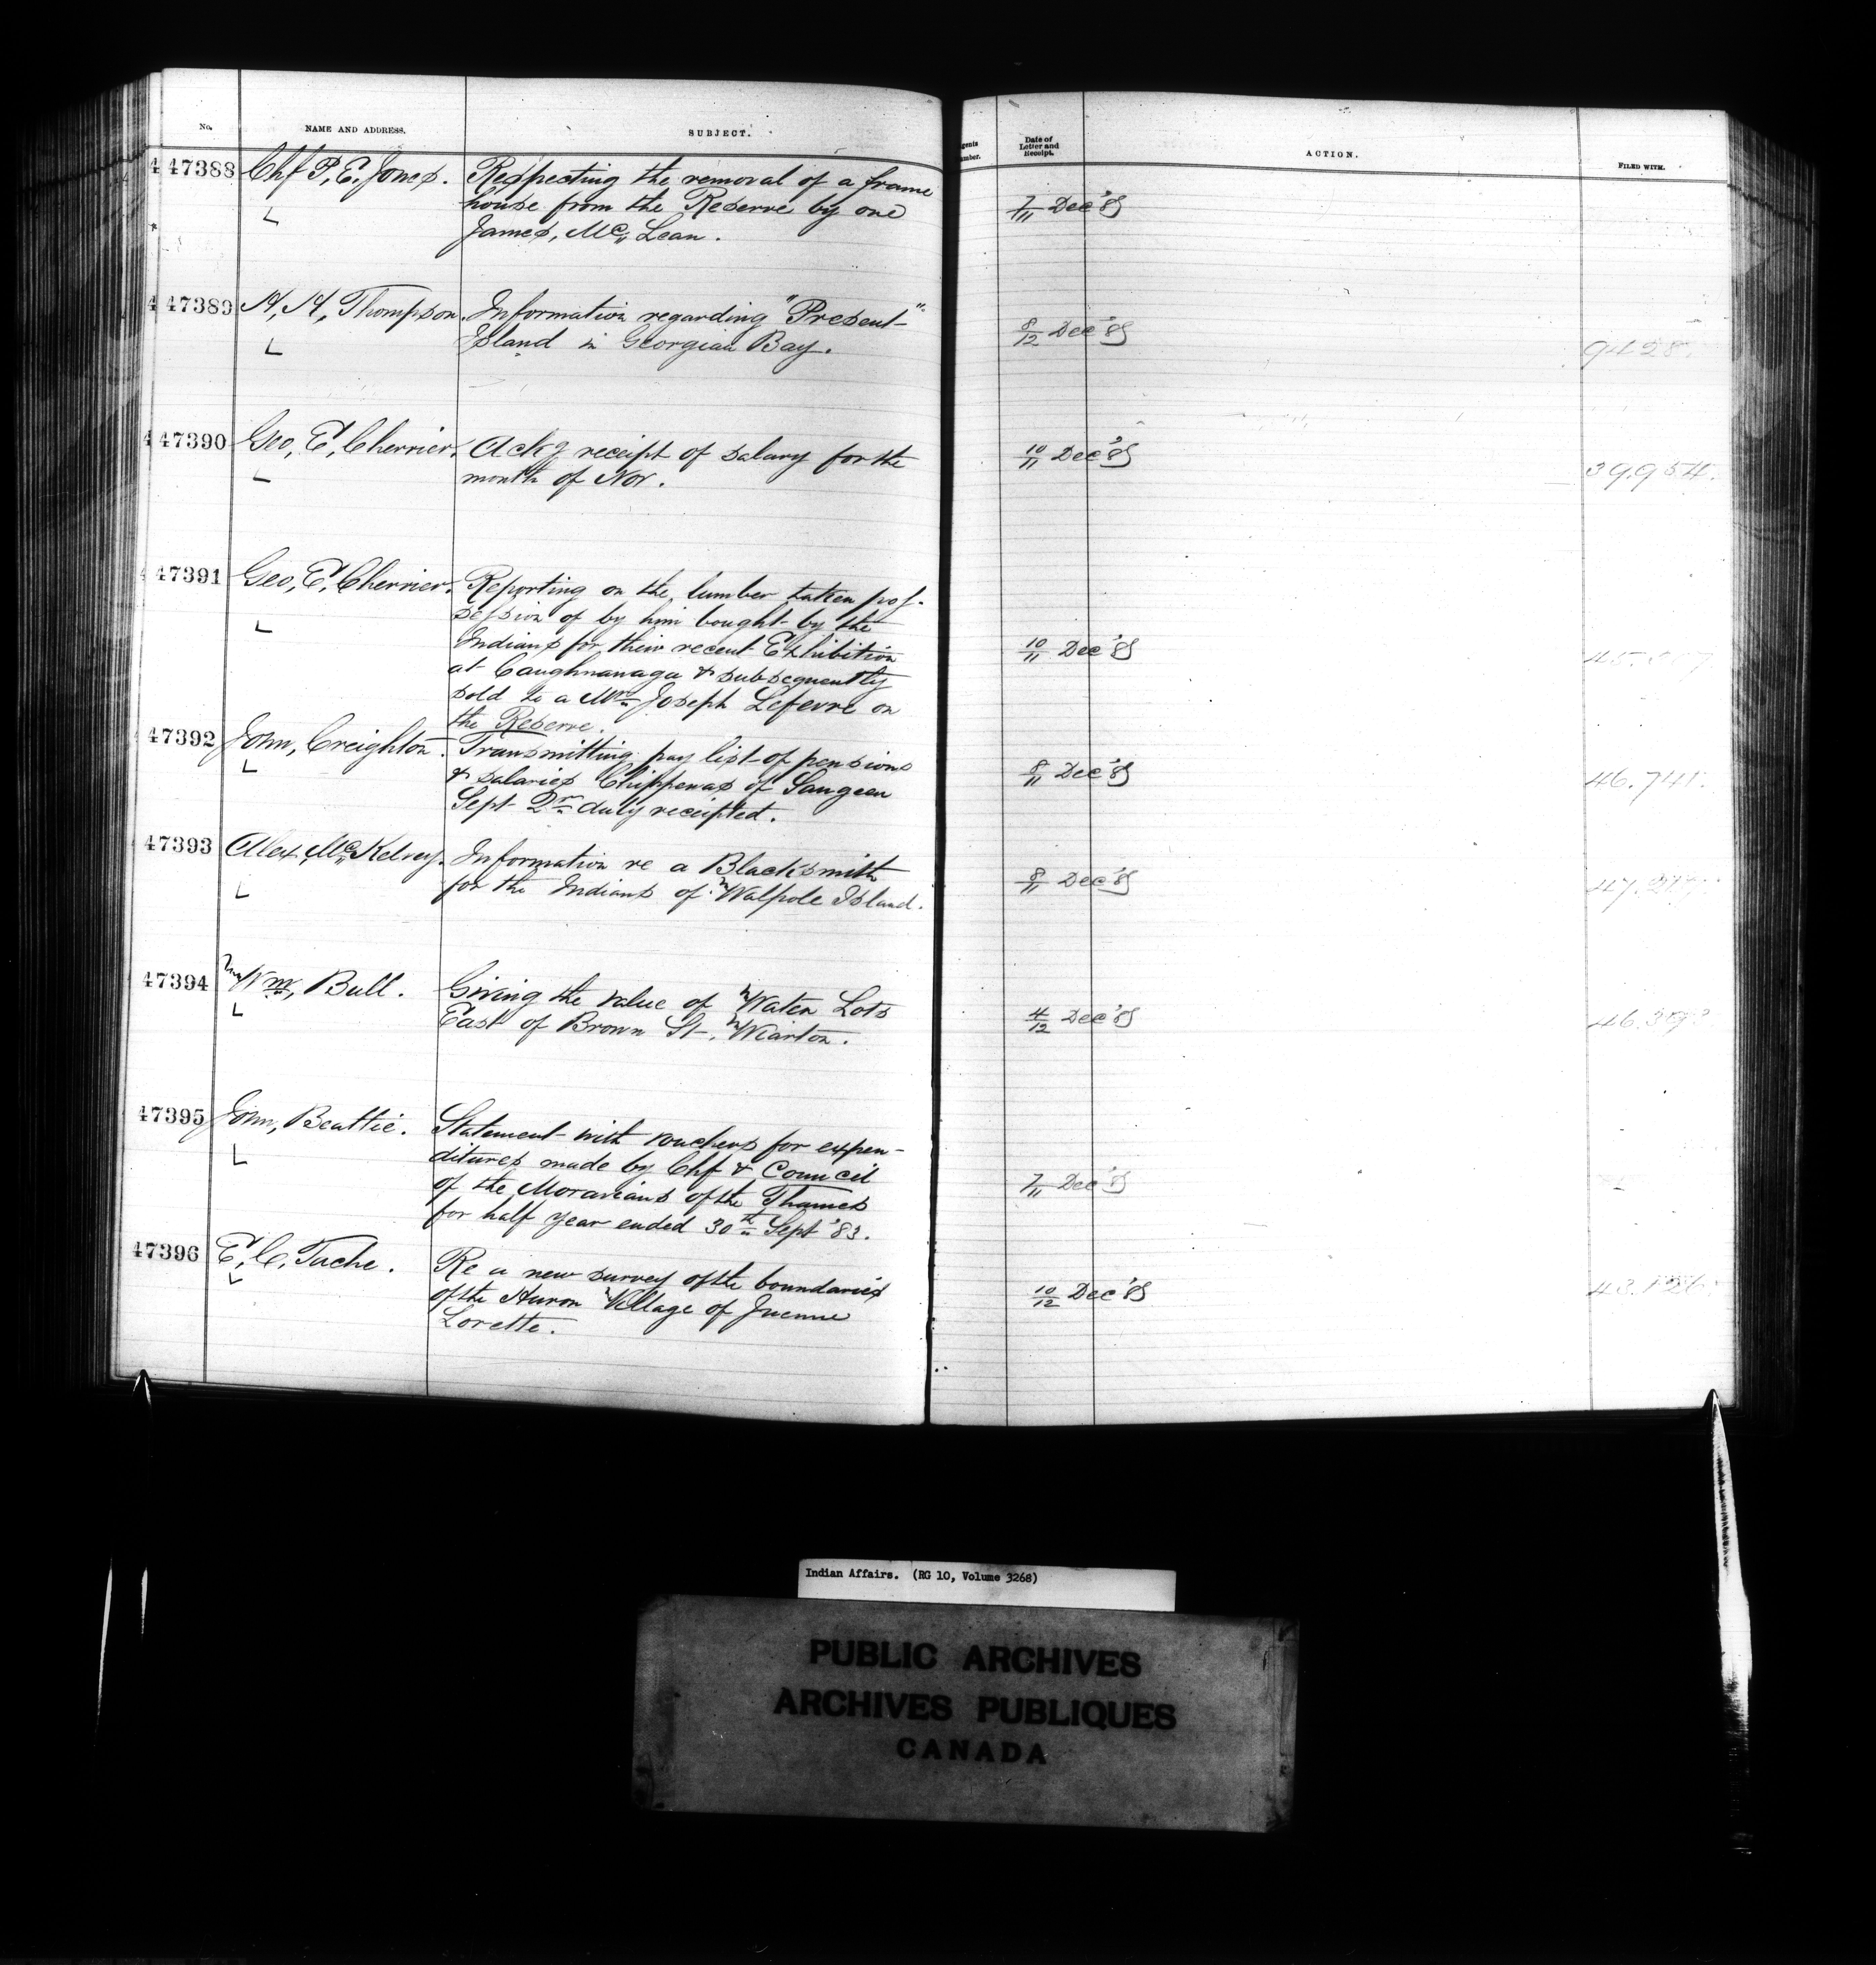 No. NAME AND ADDRESS. SUBJECT. gents umber. Date of Letter and Receipt. ACTION. FILED WITH.
47388 Chf P, E, Jones. Respecting the removal of a frame
house from the Reserve by one 7/11 Dec '83
James, Mc Lean.
47389 H, H, Thompson. Information regarding "Present"
Island in Georgian Bay. 8/12 Dec '83 9428.
47390 Geo, E, Cherrier. Ackg receipt of salary for the 10/11 Dec '83
month of Nov. 39,954.
47391 Geo, E, Cherrier. Reporting on the lumber taken pos-
session of by him bought by the
Indians for their recent Exhibition 10/11 Dec '83
at Caughnawaga & subsequently
sold to a Mr Joseph Lefevre on
the Reserve.
47392 John, Creighton. Transmitting pay list of pensions
& salaries Chippewas of Saugeen 8/11 Dec '83 46.741.
Sept Qr duly receipted.
47393 Alex, Mc Kelvey. Information re a Blacksmith
for the Indians of Walpole Island. 8/11 Dec '83
47394 Wm, Bull. Giving the value of Water Lots
East of Brown St, Wiarton. 4/12 Dec '83
47395 John, Beattie. Statement with vouchers for expen-
ditures made by Chf & Council
of the Moravians of the Thames 7/11 Dec '83
for half year ended 30th Sept '83.
47396 E, C, Tache. Re a new survey of the boundaries
of the Huron Village of Juenne 10/12 Dec '83
Lorette.
Indian Affairs. (RG 10, Volume 3268)
PUBLIC ARCHIVES
ARCHIVES PUBLIQUES
CANADA